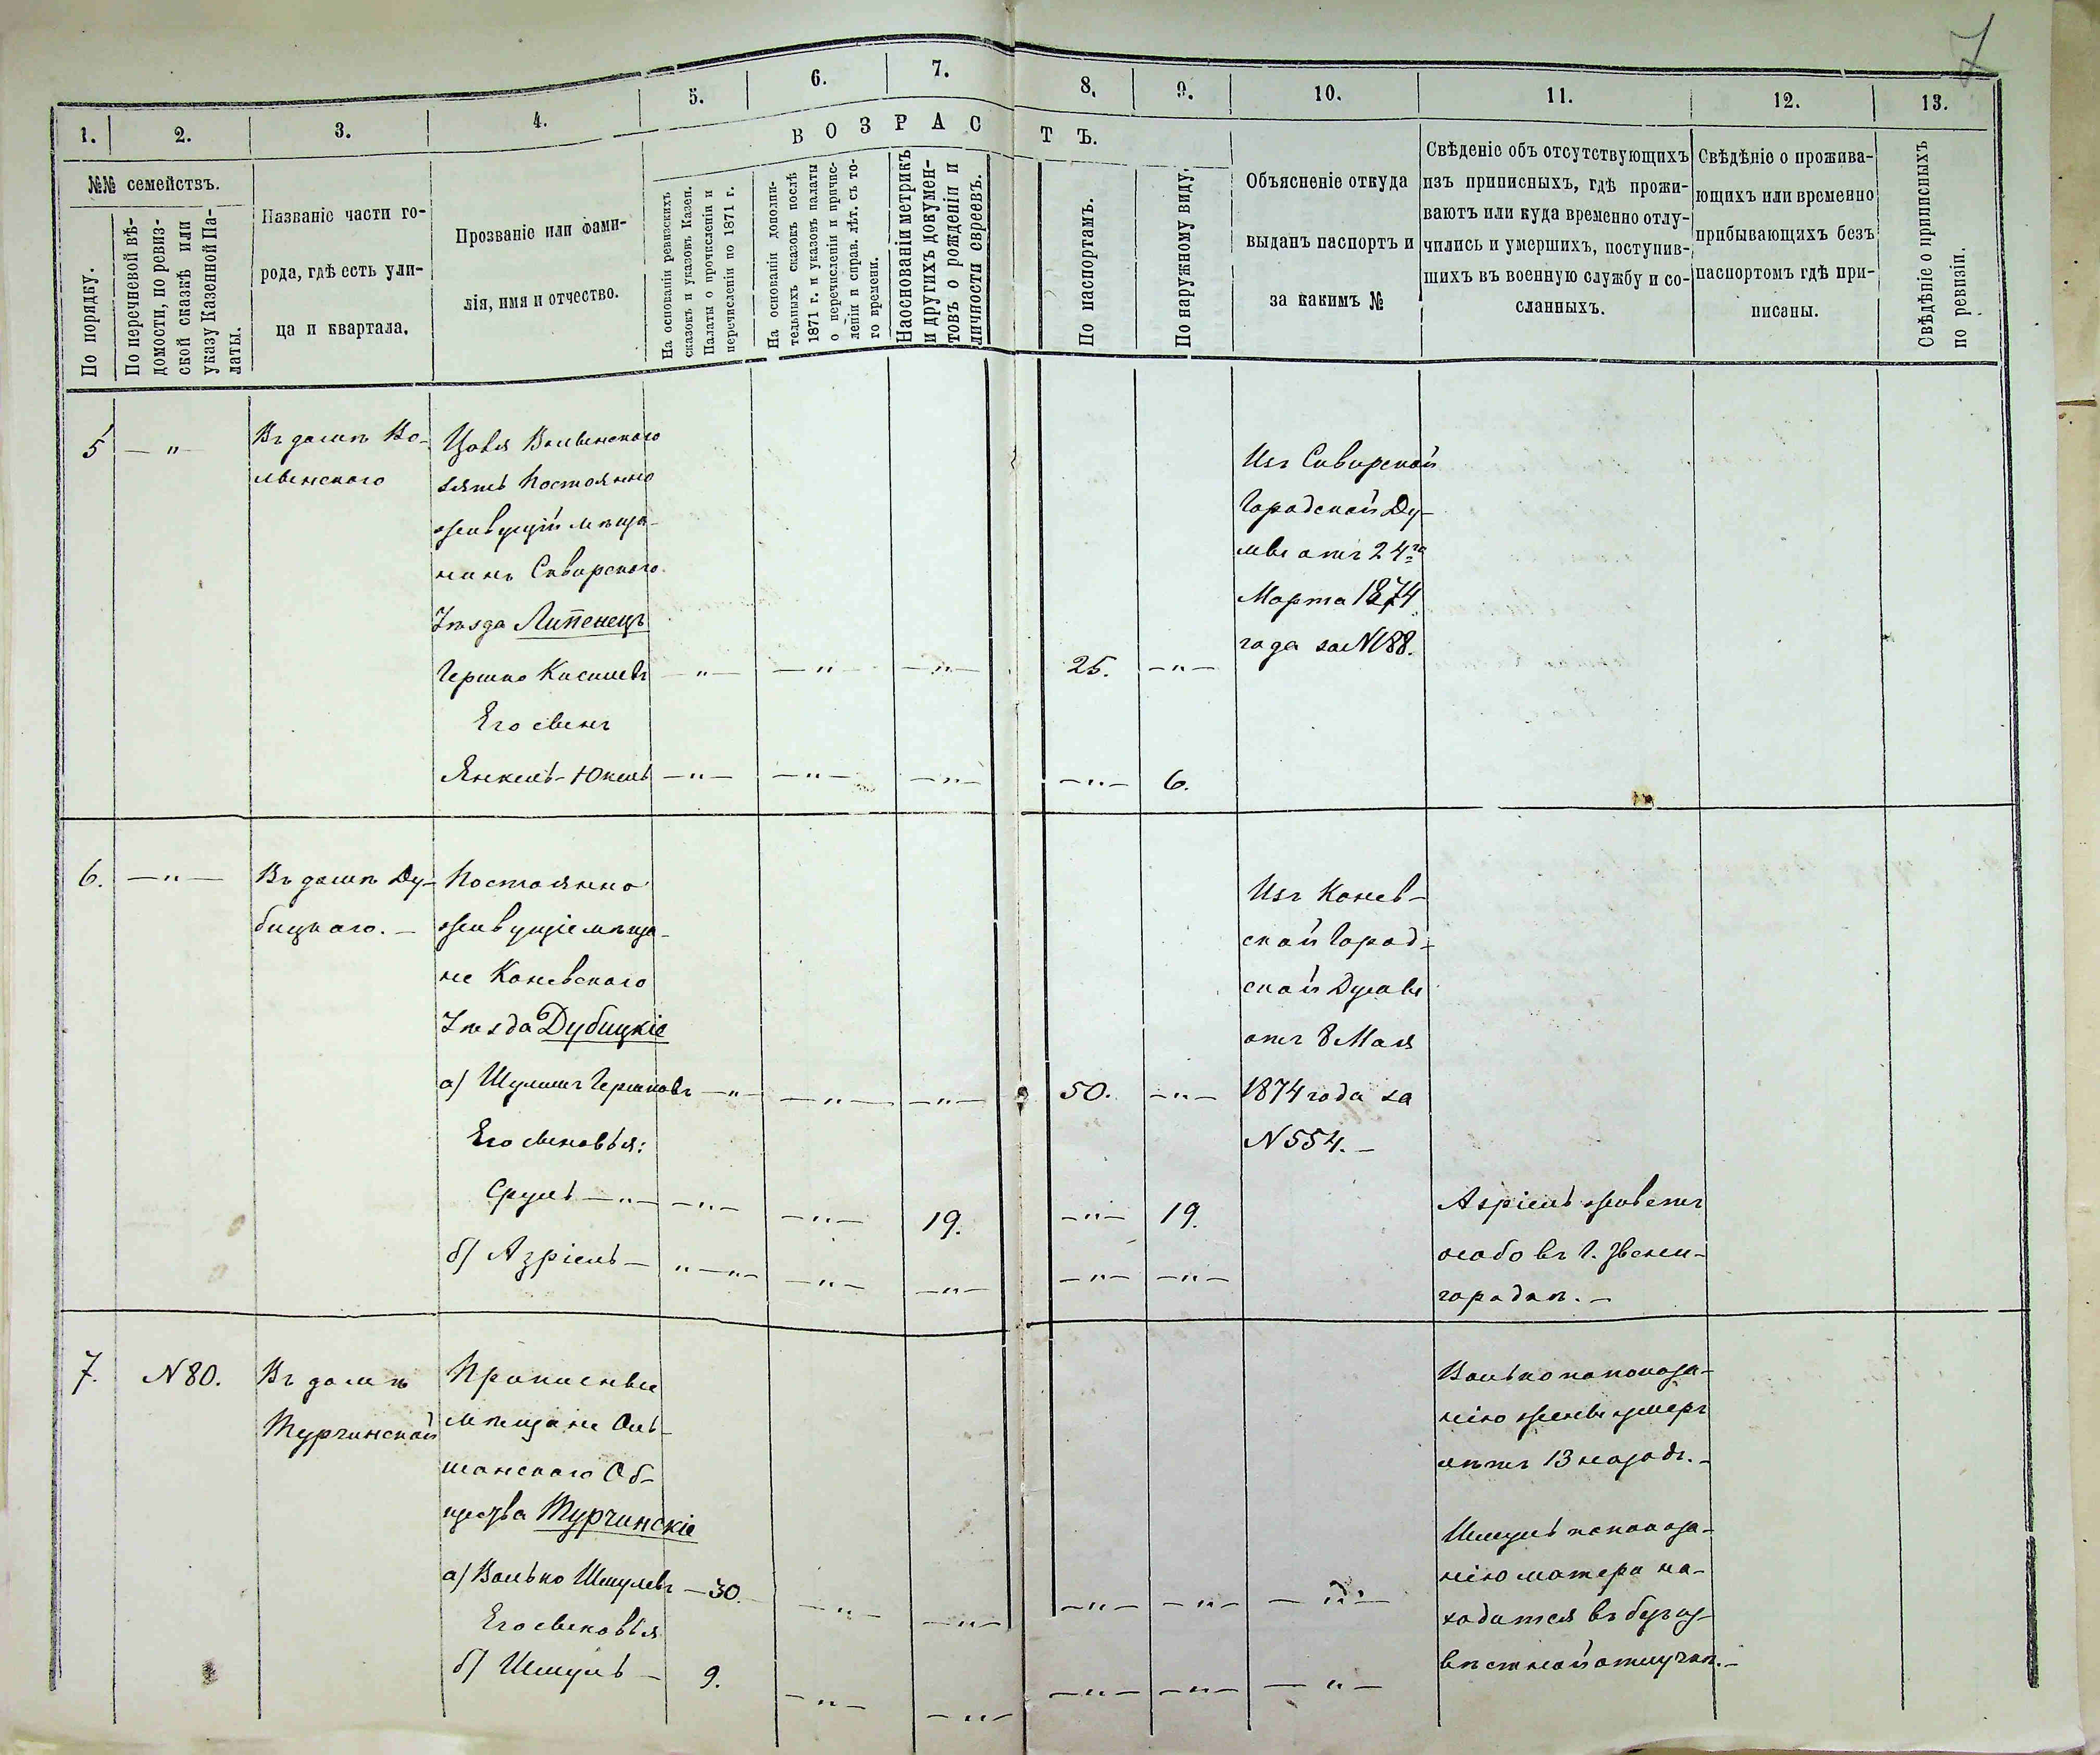 7
1.
2.
3.
4.
5.
6.
7.
8.
9.
10.
11.
12.
13.
В О З Р А С Т Ъ.
№№ семействъ.
По порядку.
По перечневой вѣ-
домости, по ревиз-
ской сказкѣ или
указу Казенной Па-
латы.
Названіе части го-
рода, гдѣ есть ули-
ца и квартала.
Прозваніе или фами-
лія, имя и отчество.
На основаніи ревизскихъ
сказокъ и указовъ Казен.
Палаты о прочисленіи и
перечисленіи по 1871 г.
На основаніи дополни-
тельныхъ сказокъ послѣ
1871 г. и указовъ палаты
о перечисленіи и причис-
леніи и справ. лѣт. съ то-
го времени.
На основаніи метрикъ
и другихъ докумен-
товъ о рожденіи и
личности евреевъ.
По паспортамъ.
По наружному виду.
Объясненіе откуда
выданъ паспортъ и
за какимъ №
Свѣденіе объ отсутствующихъ
изъ приписныхъ, гдѣ прожи-
ваютъ или куда временно отлу-
чились и умершихъ, поступив-
шихъ въ военную службу и со-
сланныхъ.
Свѣдѣніе о прожива-
ющихъ или временно
прибывающихъ безъ
паспортомъ гдѣ при-
писаны.
Свѣдѣніе о приписныхъ
по ревизіи.
5 — " —
Въ домѣ Во-
лынского
Волынского
зять постоянно
живущій мѣща-
нинъ Сквирского
Уѣзда Липенецъ
Гершко Кисилевъ — " — — " — — " — 25. — " —
Его сынъ
Янкель-Юкель — " — — " — — " — — " — 6.
Изъ Сквирской
Городской Ду-
мы отъ 24го
Марта 1874
года за N188.
6. — " —
Въ домѣ Ду-
бицкого. —
Постоянно
живущіе мѣща-
не Каневского
Уѣзда Дубицкіе
а) Шулимъ Гершковъ — " — — " — — " — 50. — " —
Его сыновья:
Сруль — " — — " — — " — 19. — " — 19.
б) Азріель — " — " — — " — — " — — " — — " —
Изъ Канев-
ской Город-
ской Думы
отъ 8 Мая
1874 года за
N 554. —
Азріель живетъ
особо въ г. Звени-
городкѣ. —
7. N 80.
Въ домѣ
Турчинской
Приписные
мѣщане Оль-
шанского Об-
щества Турчинскіе
а) Волько Шмулевъ — 30. — " — — " — — " — — " — — " —
Его сыновья
б) Шмуль — 9. — " — — " — — " — — " — — " —
Волько по показа-
нію жены умеръ
лѣтъ 13 назадъ. —
Шмуль по показа-
нію матери на-
ходится въ безъиз-
вѣстной отлучкѣ. —